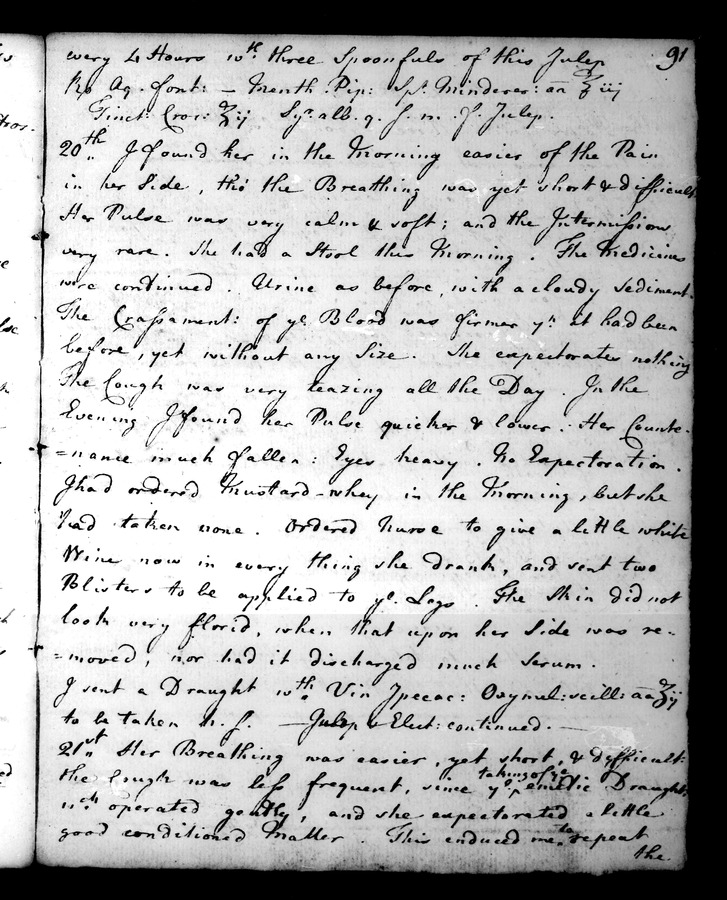 91
every 4 Hours wth three Spoonfuls of this Julep
Rp Aq. font: – Menth. Pip: Spt. Minderer: aa ℥iij
Tinct: Croc: ʒij Syr. alb. q. s. m. f. Julep.
20th I found her in the Morning easier of the Pain
in her Side, tho' the Breathing was yet short & difficult
Her Pulse was very calm & soft; and the Intermissions
very rare. She had a Stool this Morning. The Medicines
were continued. Urine as before, with a cloudy Sediment.
The Crassament: of ye. Blood was firmer yn. it had been
before, yet without any Size. She expectorates nothing
The Cough was very teazing all the Day. In the
Evening I found her Pulse quicker & lower. Her Counte-
=nance much fallen: Eyes heavy. No Expectoration.
I had ordered Mustard-whey in the Morning, but she
had taken none. Ordered Nurse to give a little white
Wine now in every thing she drank, and sent two
Blisters to be applied to ye. Legs. The Skin did not
look very florid, when that upon her Side was re-
=moved, nor had it discharged much Serum.
I sent a Draught wth Vin Ipecac: Oxymel: scill: aa ʒij
to be taken h. s. — Julep & Elect: continued. —
21st Her Breathing was easier, yet short, & dyfficult:
the Cough was less frequent, since taking of ye emetic Draught,
wch operated gently, and she expectorated a little
good conditioned Matter. This induced me to repeat
the